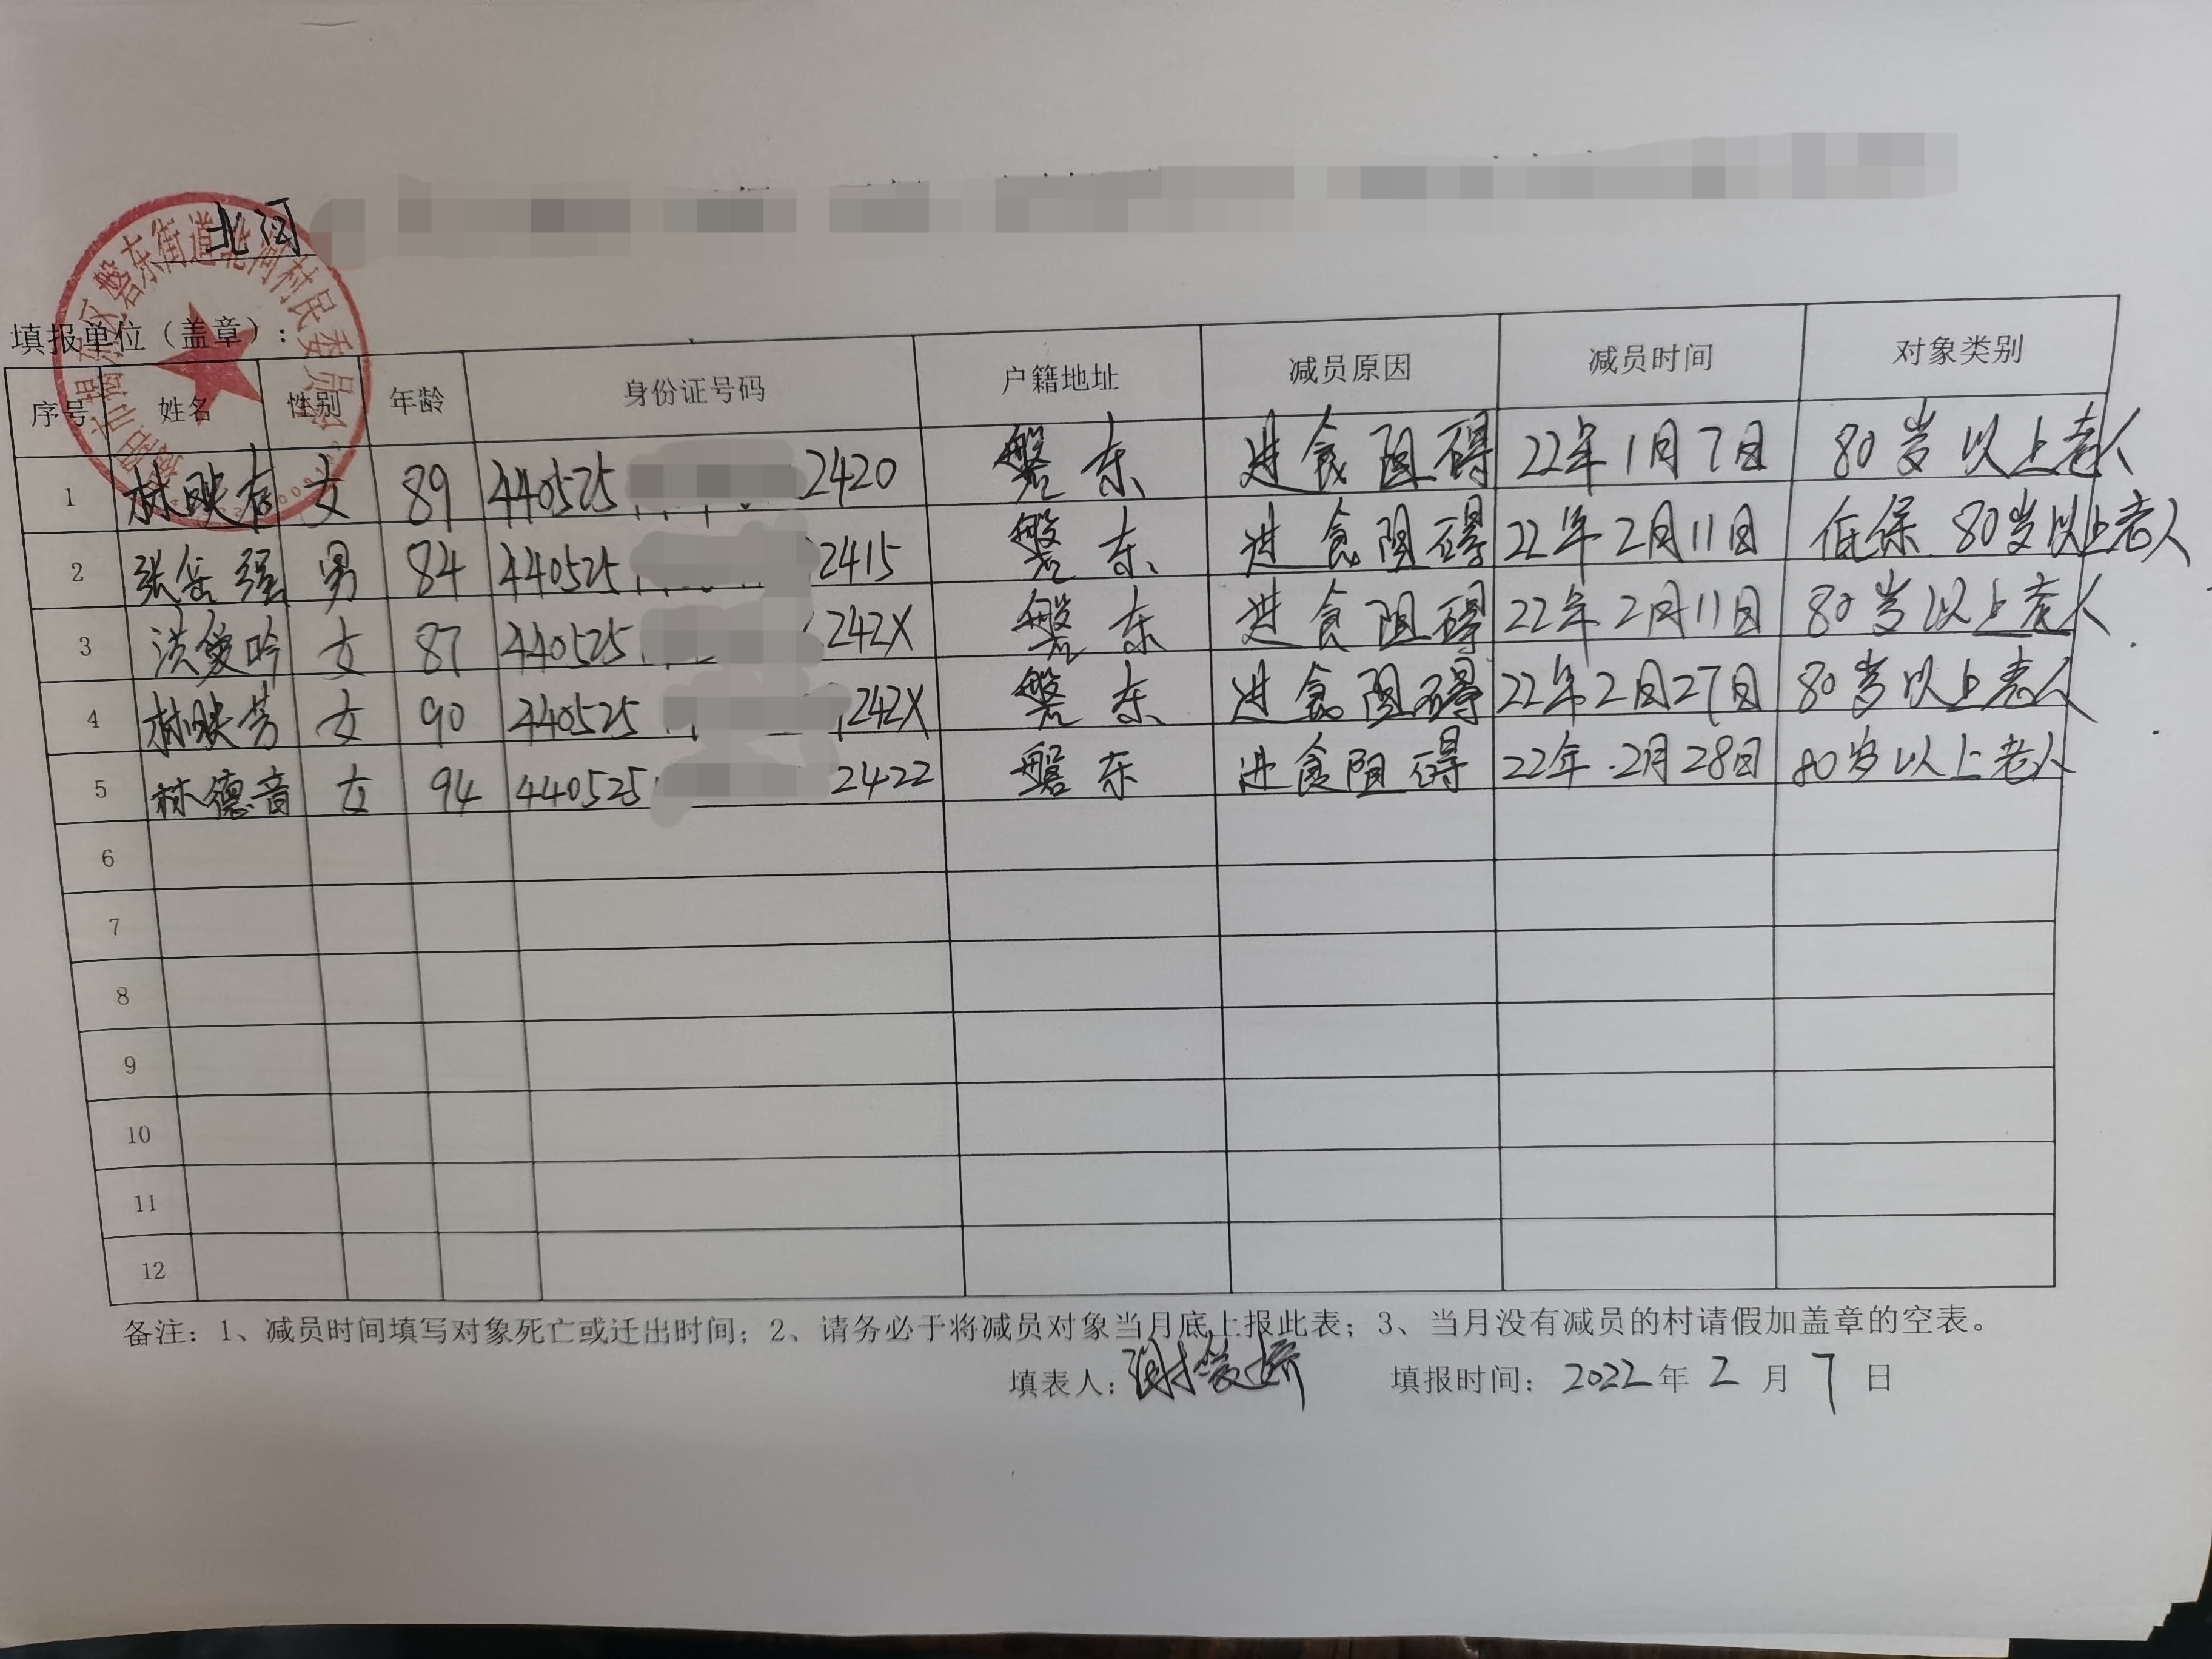 北河
磐东街道北河村民委员会
填报单位（盖章）：
序号 姓名 性别 年龄 身份证号码 户籍地址 减员原因 减员时间 对象类别
1 林映 女 89 440525 2420 磐东 进食阻碍 22年1月7日 80岁以上老人
2 张岳强 男 84 440525 2415 磐东 进食阻碍 22年2月11日 低保、80岁以上老人
3 洪爱吟 女 87 440525 242X 磐东 进食阻碍 22年2月11日 80岁以上老人
4 林映芳 女 90 440525 242X 磐东 进食阻碍 22年2月27日 80岁以上老人
5 林德音 女 94 440525 2422 磐东 进食阻碍 22年2月28日 80岁以上老人
6
7
8
9
10
11
12
备注：1、减员时间填写对象死亡或迁出时间；2、请务必于将减员对象当月底上报此表；3、当月没有减员的村请假加盖章的空表。
填表人： 填报时间：2022年2月7日